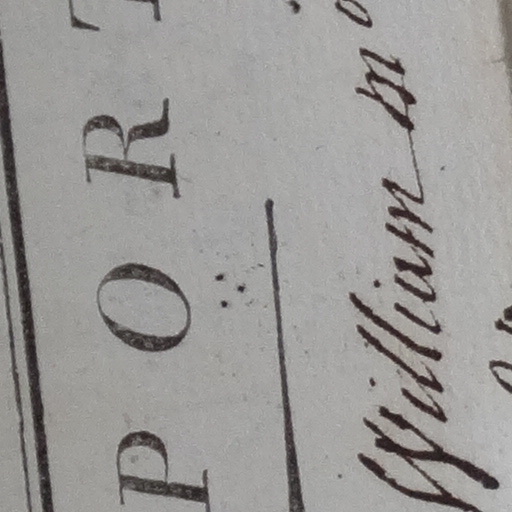 PORT
William